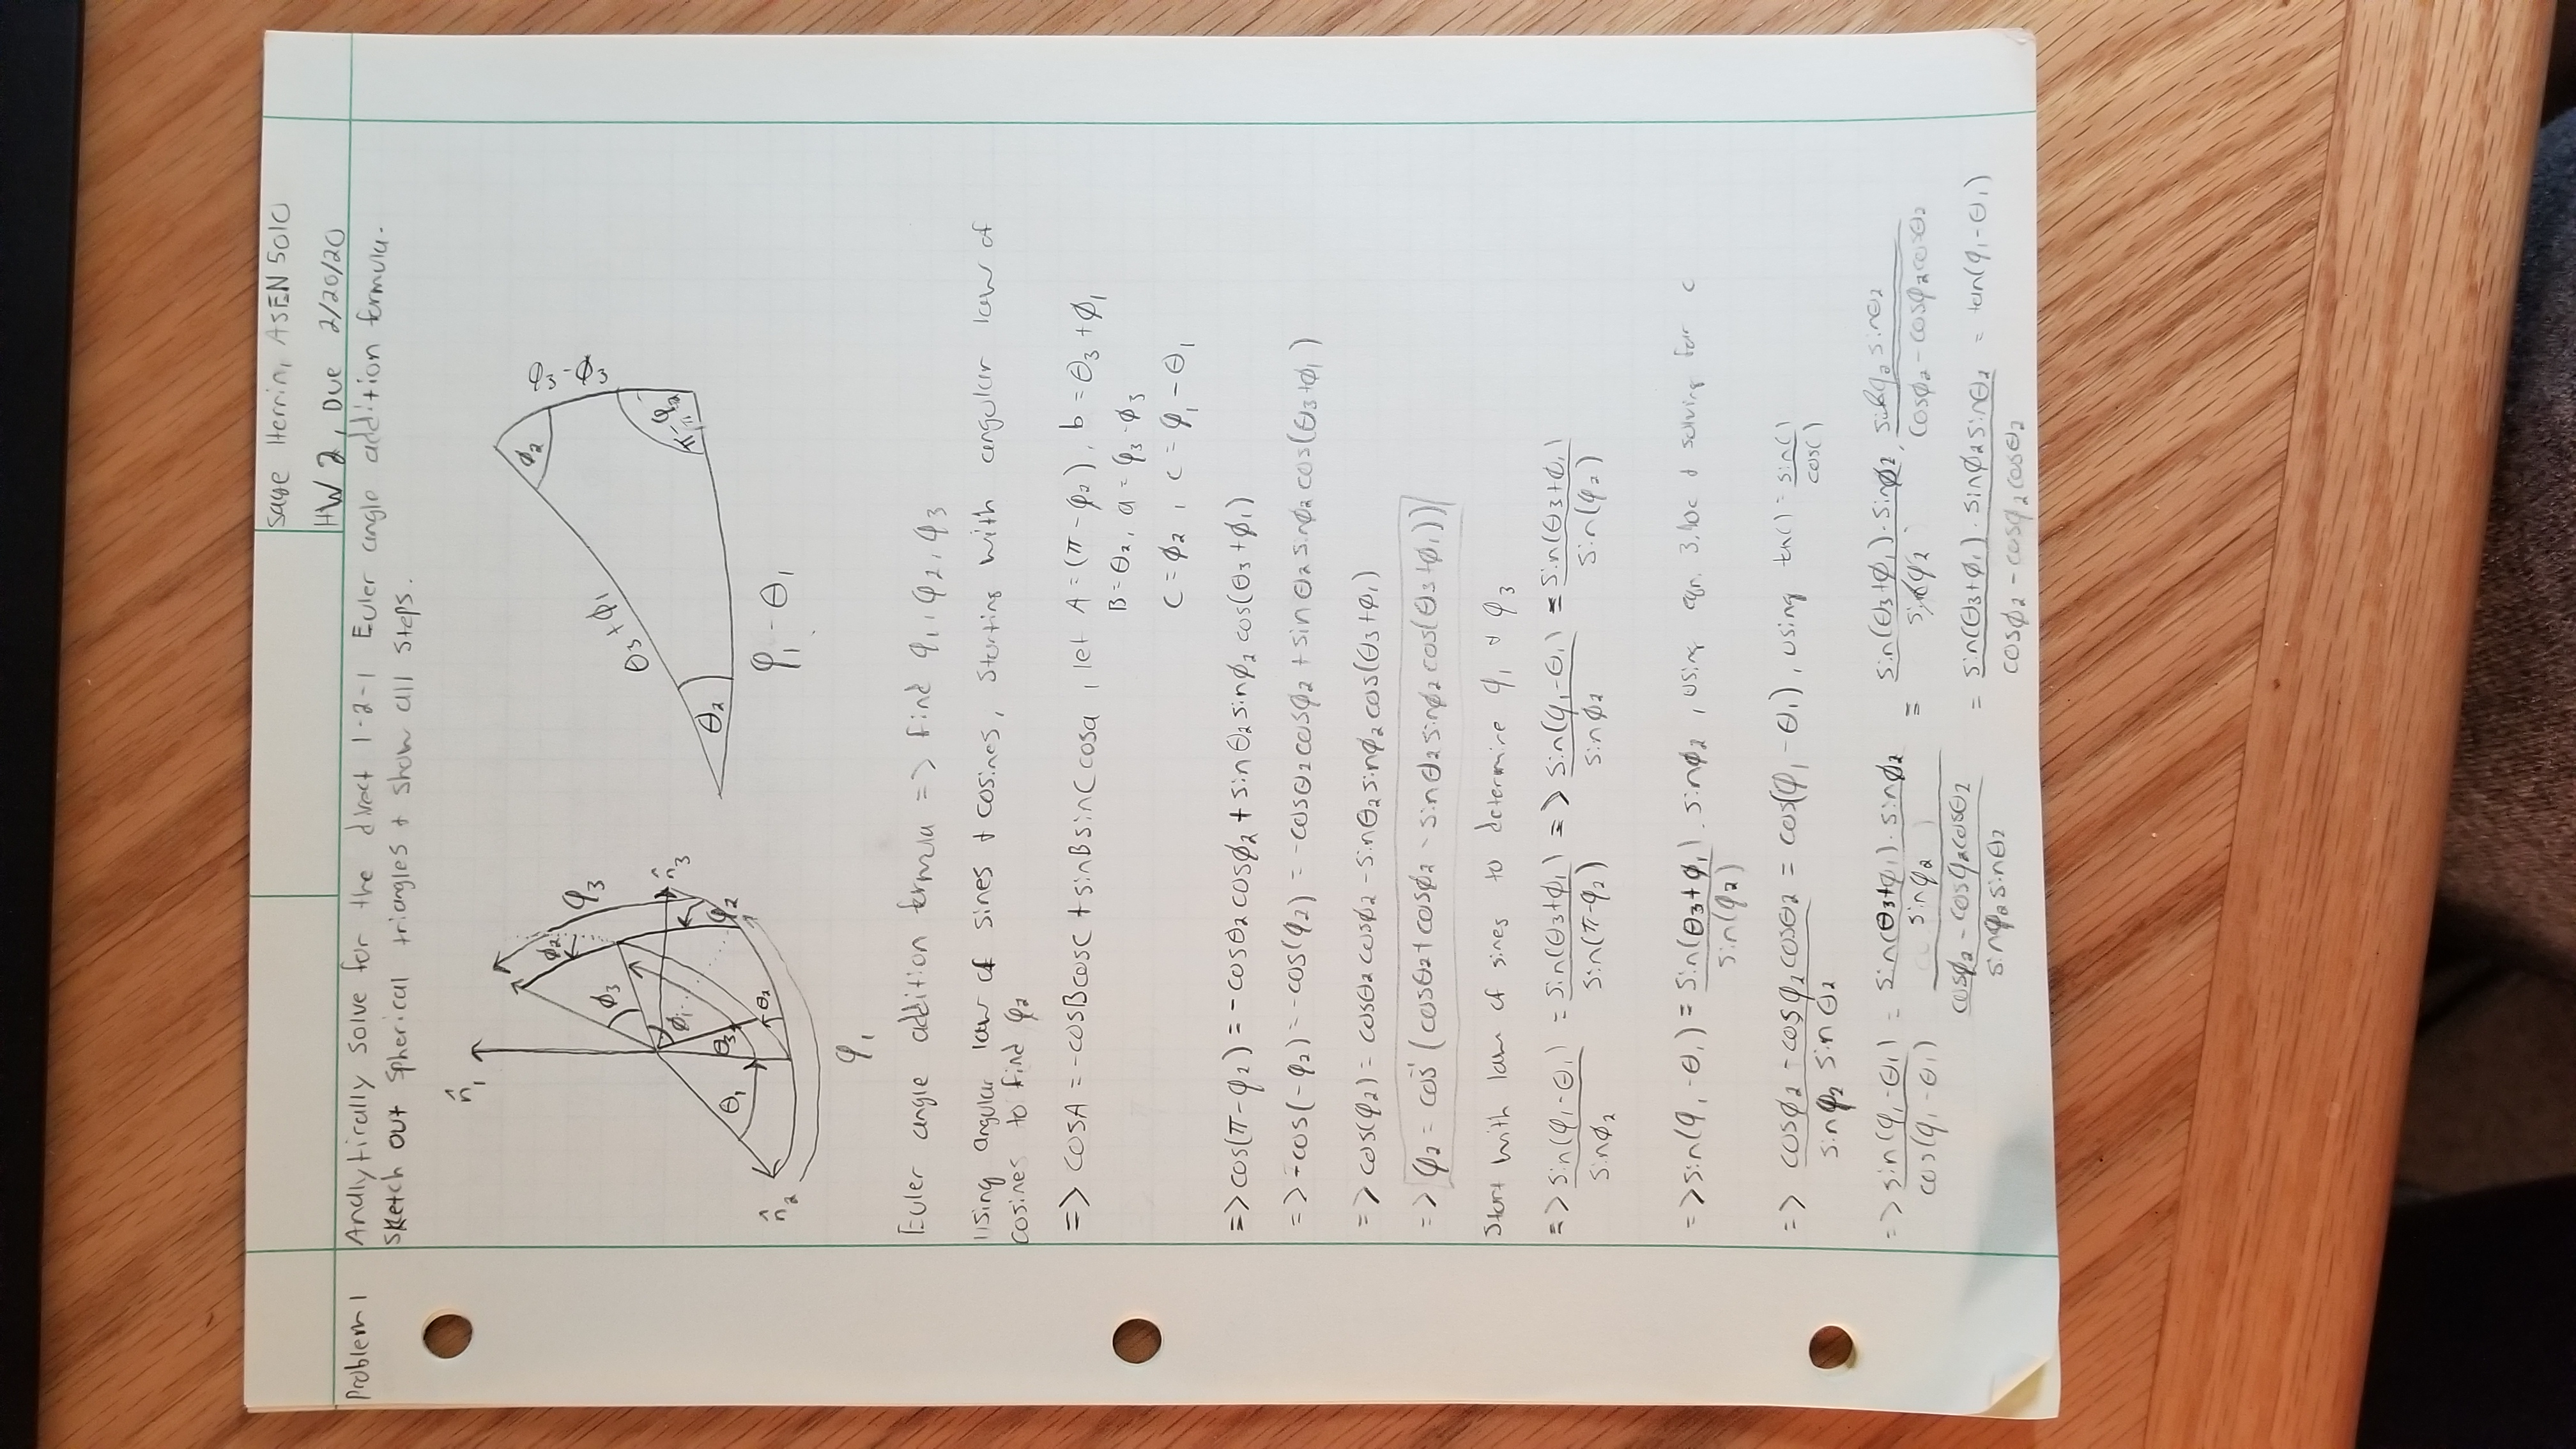 Sage Herrin, ASEN 5010
HW 2, Due 2/20/20
Problem 1
Analytically solve for the direct 1-2-1 Euler angle addition formula.
Sketch out spherical triangles + show all steps.
n̂₁
ϕ₂
φ₃
ϕ₃
n̂₃
ϕ₁
θ₁
θ₃
φ₂
θ₂
n̂₂
φ₁
ϕ₂
φ₃-ϕ₃
θ₃+ϕ₁
π-φ₂
θ₂
φ₁-θ₁
Euler angle addition formula => find φ₁, φ₂, φ₃
Using angular law of sines + cosines, starting with angular law of
cosines to find φ₂
=> cosA = -cosBcosC + sinBsinCcosa, let A = (π-φ₂), b = θ₃+ϕ₁
B = θ₂, a = φ₃-ϕ₃
C = ϕ₂, c = φ₁-θ₁
=> cos(π-φ₂) = -cosθ₂cosϕ₂ + sinθ₂sinϕ₂cos(θ₃+ϕ₁)
=> -cos(-φ₂) = -cos(φ₂) = -cosθ₂cosϕ₂ + sinθ₂sinϕ₂cos(θ₃+ϕ₁)
=> cos(φ₂) = cosθ₂cosϕ₂ - sinθ₂sinϕ₂cos(θ₃+ϕ₁)
=> φ₂ = cos⁻¹(cosθ₂+cosϕ₂ - sinθ₂sinϕ₂cos(θ₃+ϕ₁))
Start with law of sines to determine φ₁ + φ₃
=> sin(φ₁-θ₁)/sinϕ₂ = sin(θ₃+ϕ₁)/sin(π-φ₂) => sin(φ₁-θ₁)/sinϕ₂ = sin(θ₃+ϕ₁)/sin(φ₂)
=> sin(φ₁-θ₁) = sin(θ₃+ϕ₁)/sin(φ₂) · sinϕ₂, using eqn. 3.40c + solving for c
=> (cosϕ₂ - cosφ₂cosθ₂)/(sinφ₂ sinθ₂) = cos(φ₁-θ₁), using tan() = sin()/cos()
=> sin(φ₁-θ₁)/cos(φ₁-θ₁) = (sin(θ₃+ϕ₁)·sinϕ₂/sinφ₂)/((cosϕ₂ - cosφ₂cosθ₂)/(sinφ₂sinθ₂)) = sin(θ₃+ϕ₁)·sinϕ₂/sinφ₂ · sinφ₂sinθ₂/(cosϕ₂ - cosφ₂cosθ₂)
= sin(θ₃+ϕ₁)·sinϕ₂sinθ₂/(cosϕ₂ - cosφ₂cosθ₂) = tan(φ₁-θ₁)